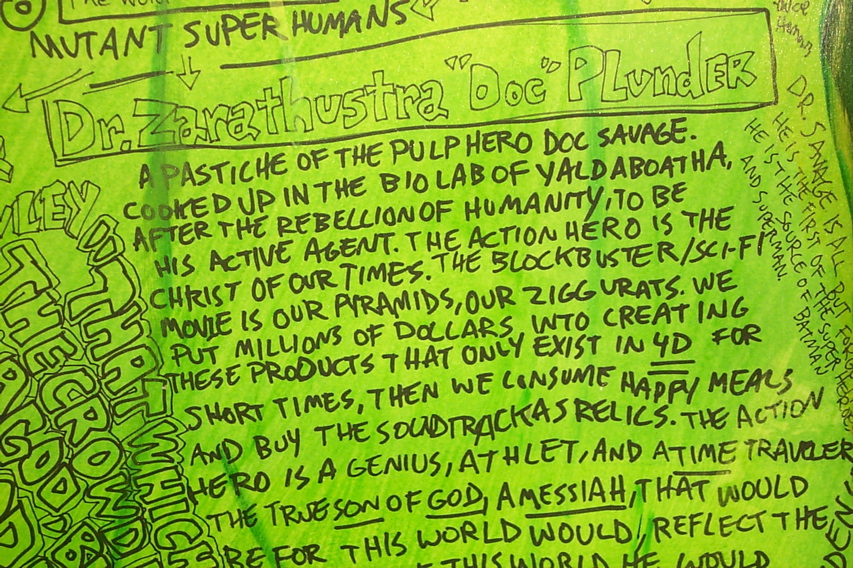 MUTANT SUPER HUMANS
Dr. Zarathustra "Doc" PLunDER
A PASTICHE OF THE PULP HERO DOC SAVAGE.
COOKED UP IN THE BIO LAB OF YALDABOATHA,
AFTER THE REBELLION OF HUMANITY, TO BE
HIS ACTIVE AGENT. THE ACTION HERO IS THE
CHRIST OF OUR TIMES. THE BLOCKBUSTER/SCI-FI
MOVIE IS OUR PYRAMIDS, OUR ZIGGURATS. WE
PUT MILLIONS OF DOLLARS INTO CREATING
THESE PRODUCTS THAT ONLY EXIST IN 4D FOR
SHORT TIMES, THEN WE CONSUME HAPPY MEALS
AND BUY THE SOUDTRACK AS RELICS. THE ACTION
HERO IS A GENIUS, ATHLET, AND A TIME TRAVELER
THE TRUE SON OF GOD, A MESSIAH, THAT WOULD
BE FOR THIS WORLD WOULD, REFLECT THE
THIS WORLD HE WOULD
DR. SAVAGE IS ALL BUT
HE IS THE FIRST OF THE SUPER
HE IS THE SOURCE OF BATMAN
AND SUPERMAN.
THAT WHICH
THE CROWD